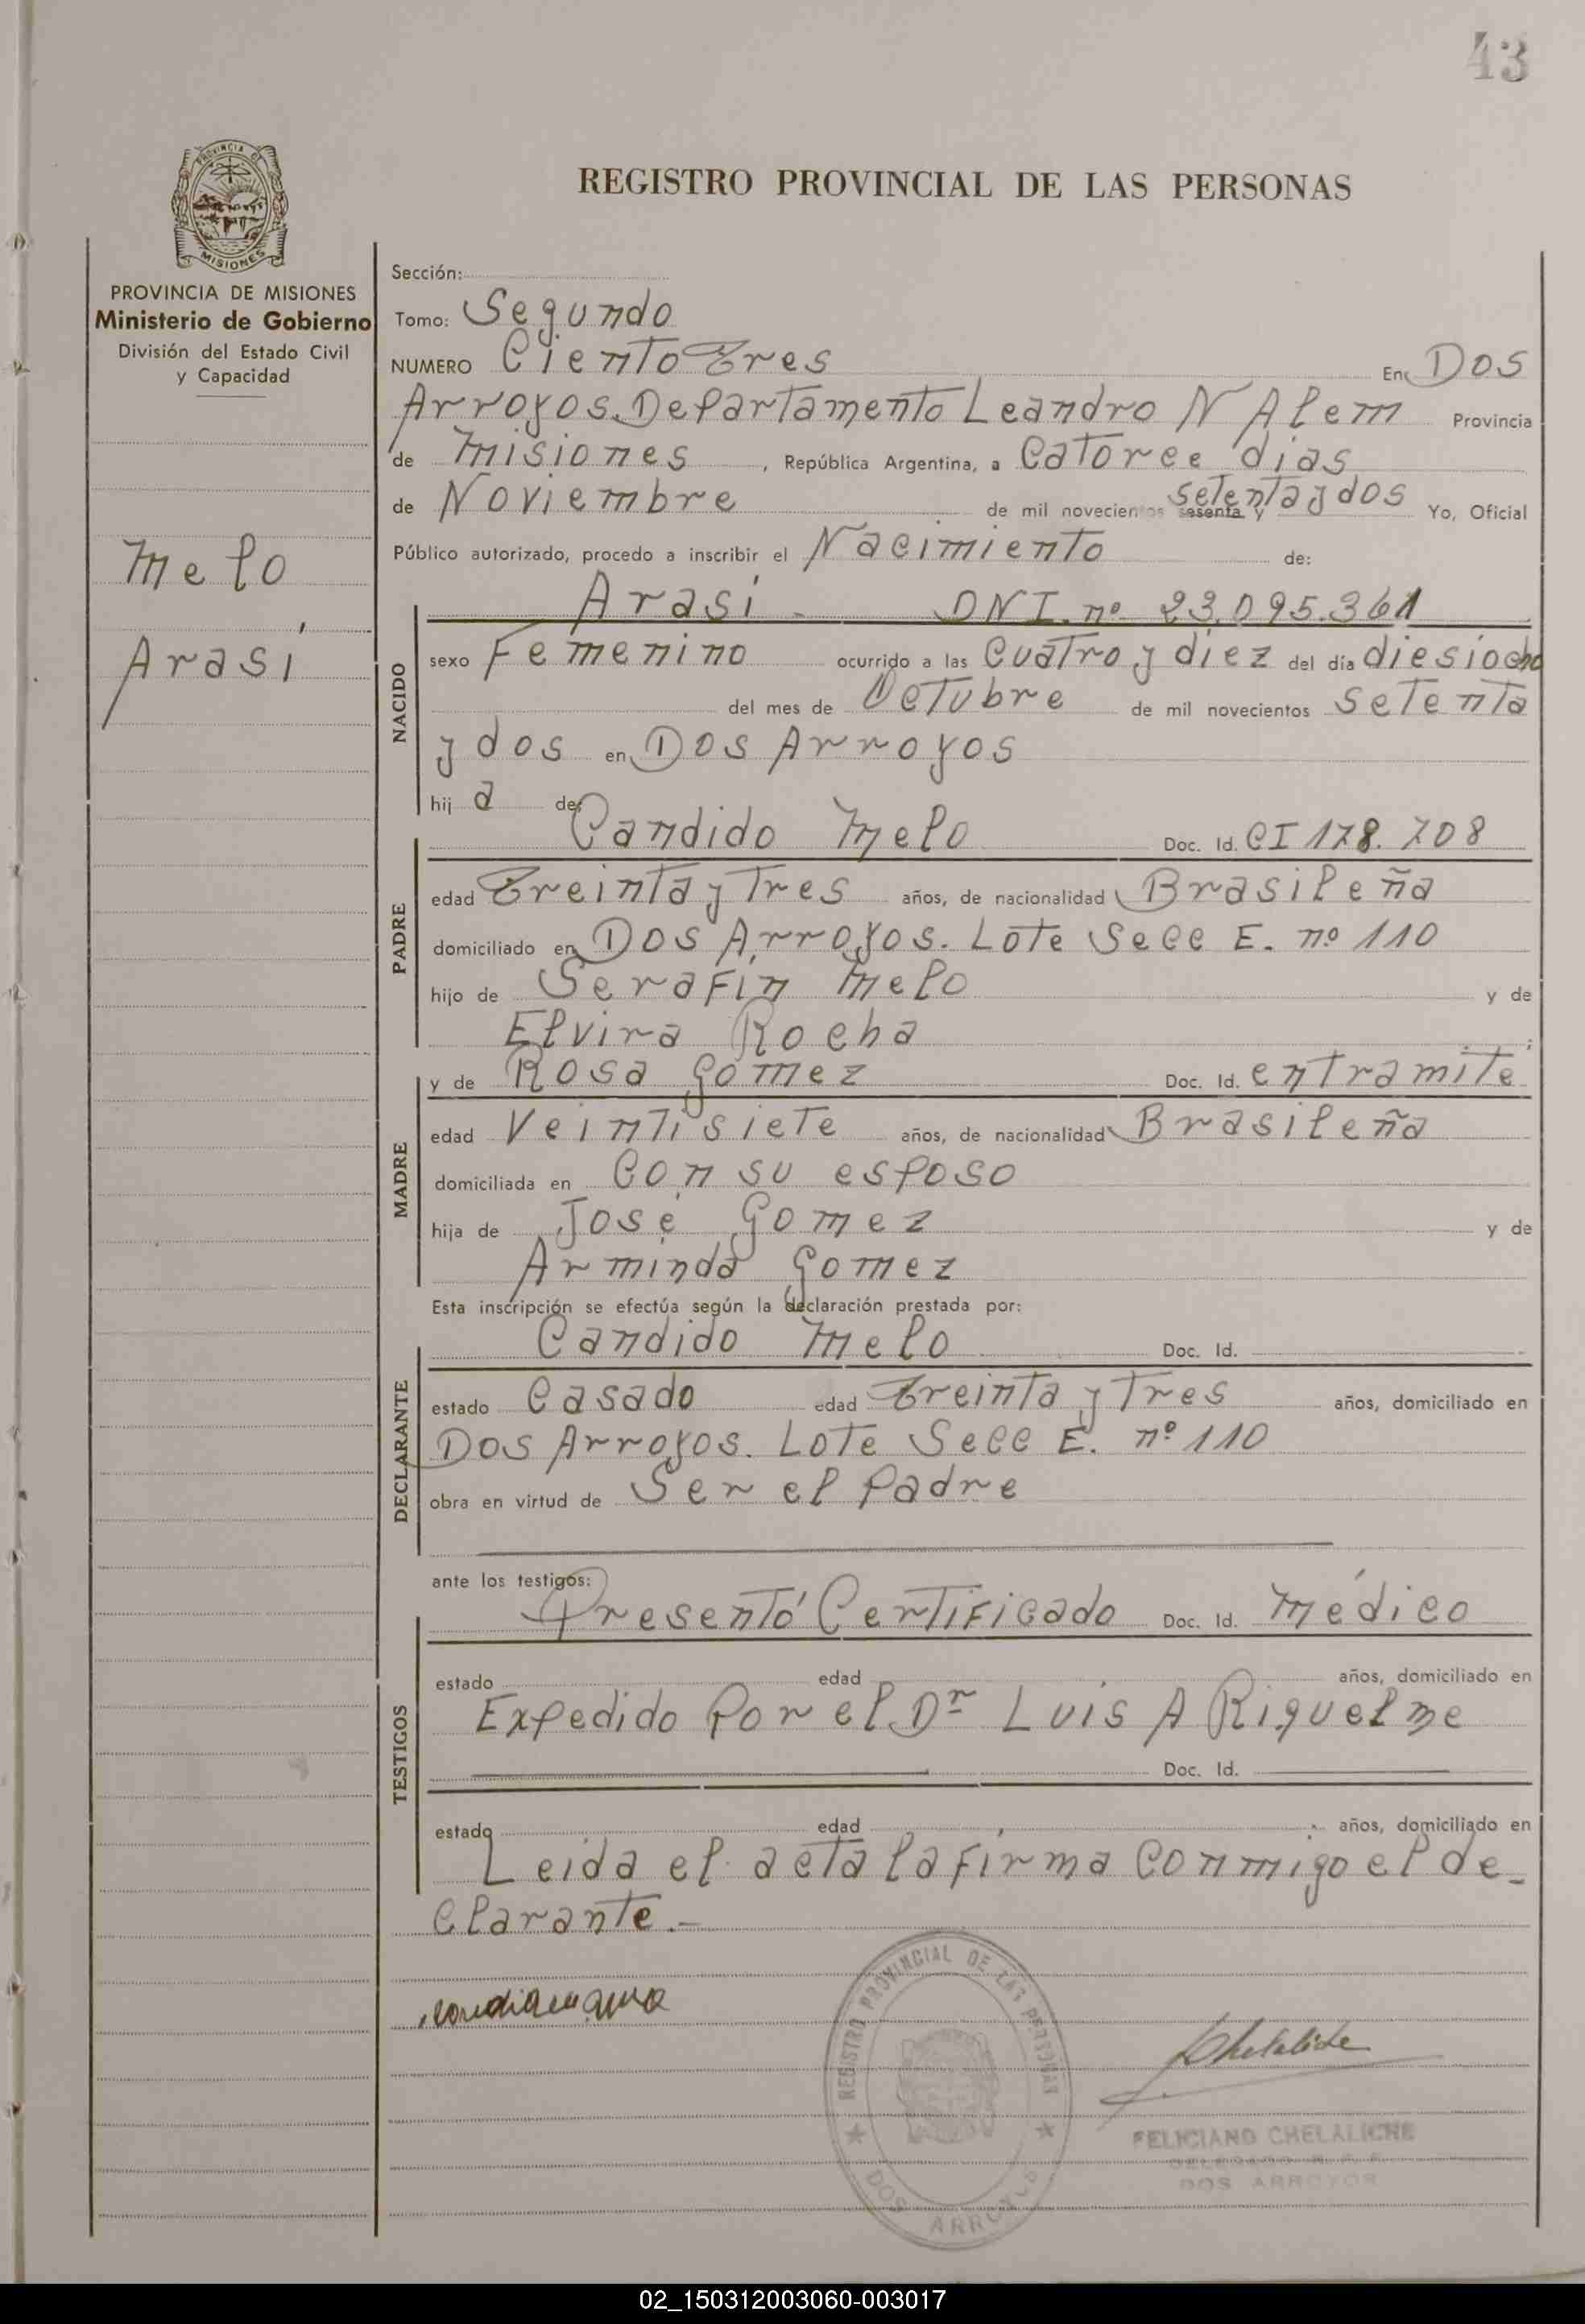 43
PROVINCIA DE
MISIONES
REGISTRO PROVINCIAL DE LAS PERSONAS
PROVINCIA DE MISIONES
Ministerio de Gobierno
División del Estado Civil
y Capacidad
Melo
Arasí
Sección:
Tomo: Segundo
NUMERO Ciento Tres En Dos
Arroyos. Departamento Leandro N Alem Provincia
de Misiones, República Argentina, a Catorce días
de Noviembre de mil novecientos sesenta y setenta y dos Yo, Oficial
Público autorizado, procedo a inscribir el Nacimiento de:
NACIDO
Arasí - DNI. nº 23.095.361
sexo Femenino ocurrido a las Cuatro y diez del día diesiocho
del mes de Octubre de mil novecientos setenta
y dos en Dos Arroyos
hij a de:
PADRE
Candido Melo Doc. Id. CI 178.708
edad Treinta y Tres años, de nacionalidad Brasileña
domiciliado en Dos Arroyos. Lote Secc E. nº 110
hijo de Serafín Melo y de
Elvira Rocha ;
MADRE
y de Rosa Gomez Doc. Id. entramite
edad Veintisiete años, de nacionalidad Brasileña
domiciliada en Con su esposo
hija de José Gomez y de
Arminda Gomez
Esta inscripción se efectúa según la declaración prestada por:
DECLARANTE
Candido Melo Doc. Id.
estado Casado edad Treinta y Tres años, domiciliado en
Dos Arroyos. Lote Secc E. nº 110
obra en virtud de Ser el Padre
ante los testigos:
TESTIGOS
Presentó Certificado Doc. Id. Médico
estado edad años, domiciliado en
Expedido Por el Dr Luis A Riquelme
Doc. Id.
estado edad años, domiciliado en
Leida el acta la Firma Conmigo el de-
clarante.-
REGISTRO PROVINCIAL DE LAS PERSONAS
DOS ARROYOS
FELICIANO CHELALICHE
DOS ARROYOS
02_150312003060-003017